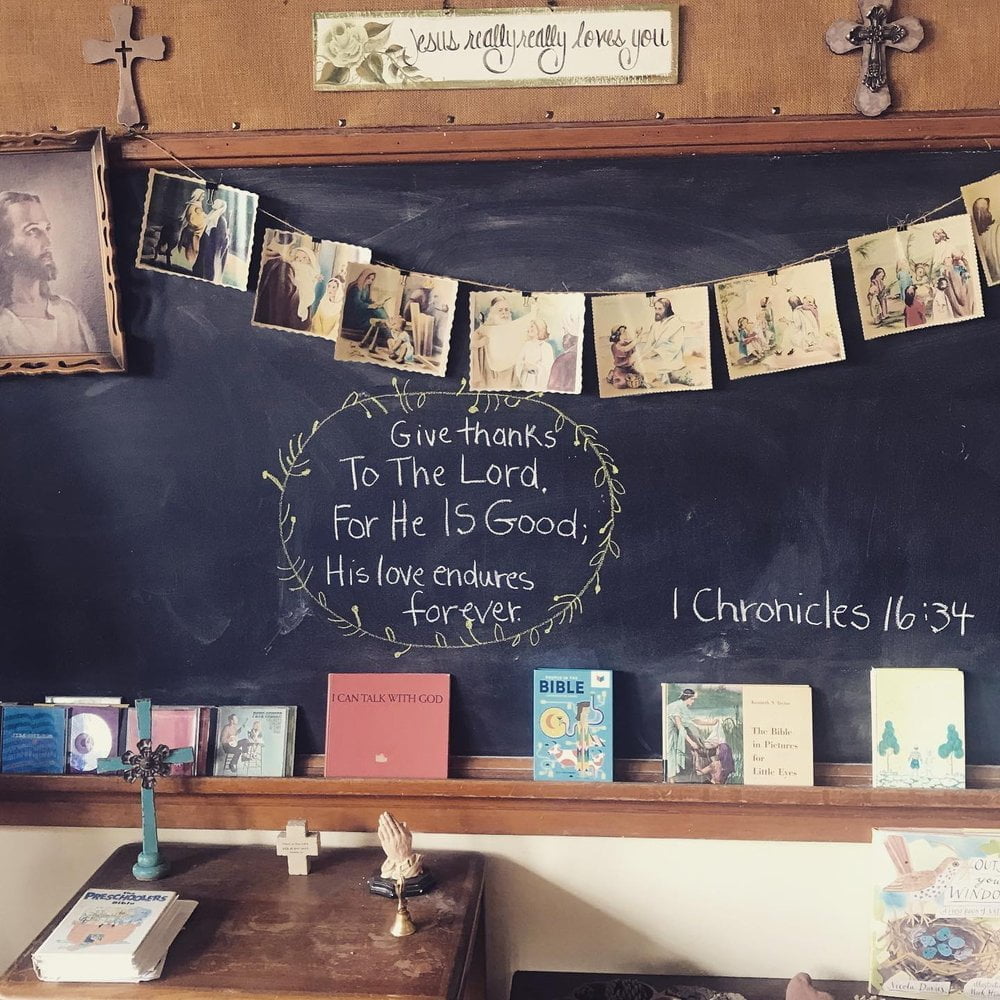 Jesus really really loves you
Give thanks
To The Lord,
For He IS Good;
His love endures
forever.
1 Chronicles 16:34
I CAN TALK WITH GOD
BIBLE
Kenneth N. Taylor
The Bible
in Pictures
for
Little Eyes
The
PRESCHOOLERS
Bible
OUTS
your
WINDO
Nicola Davies